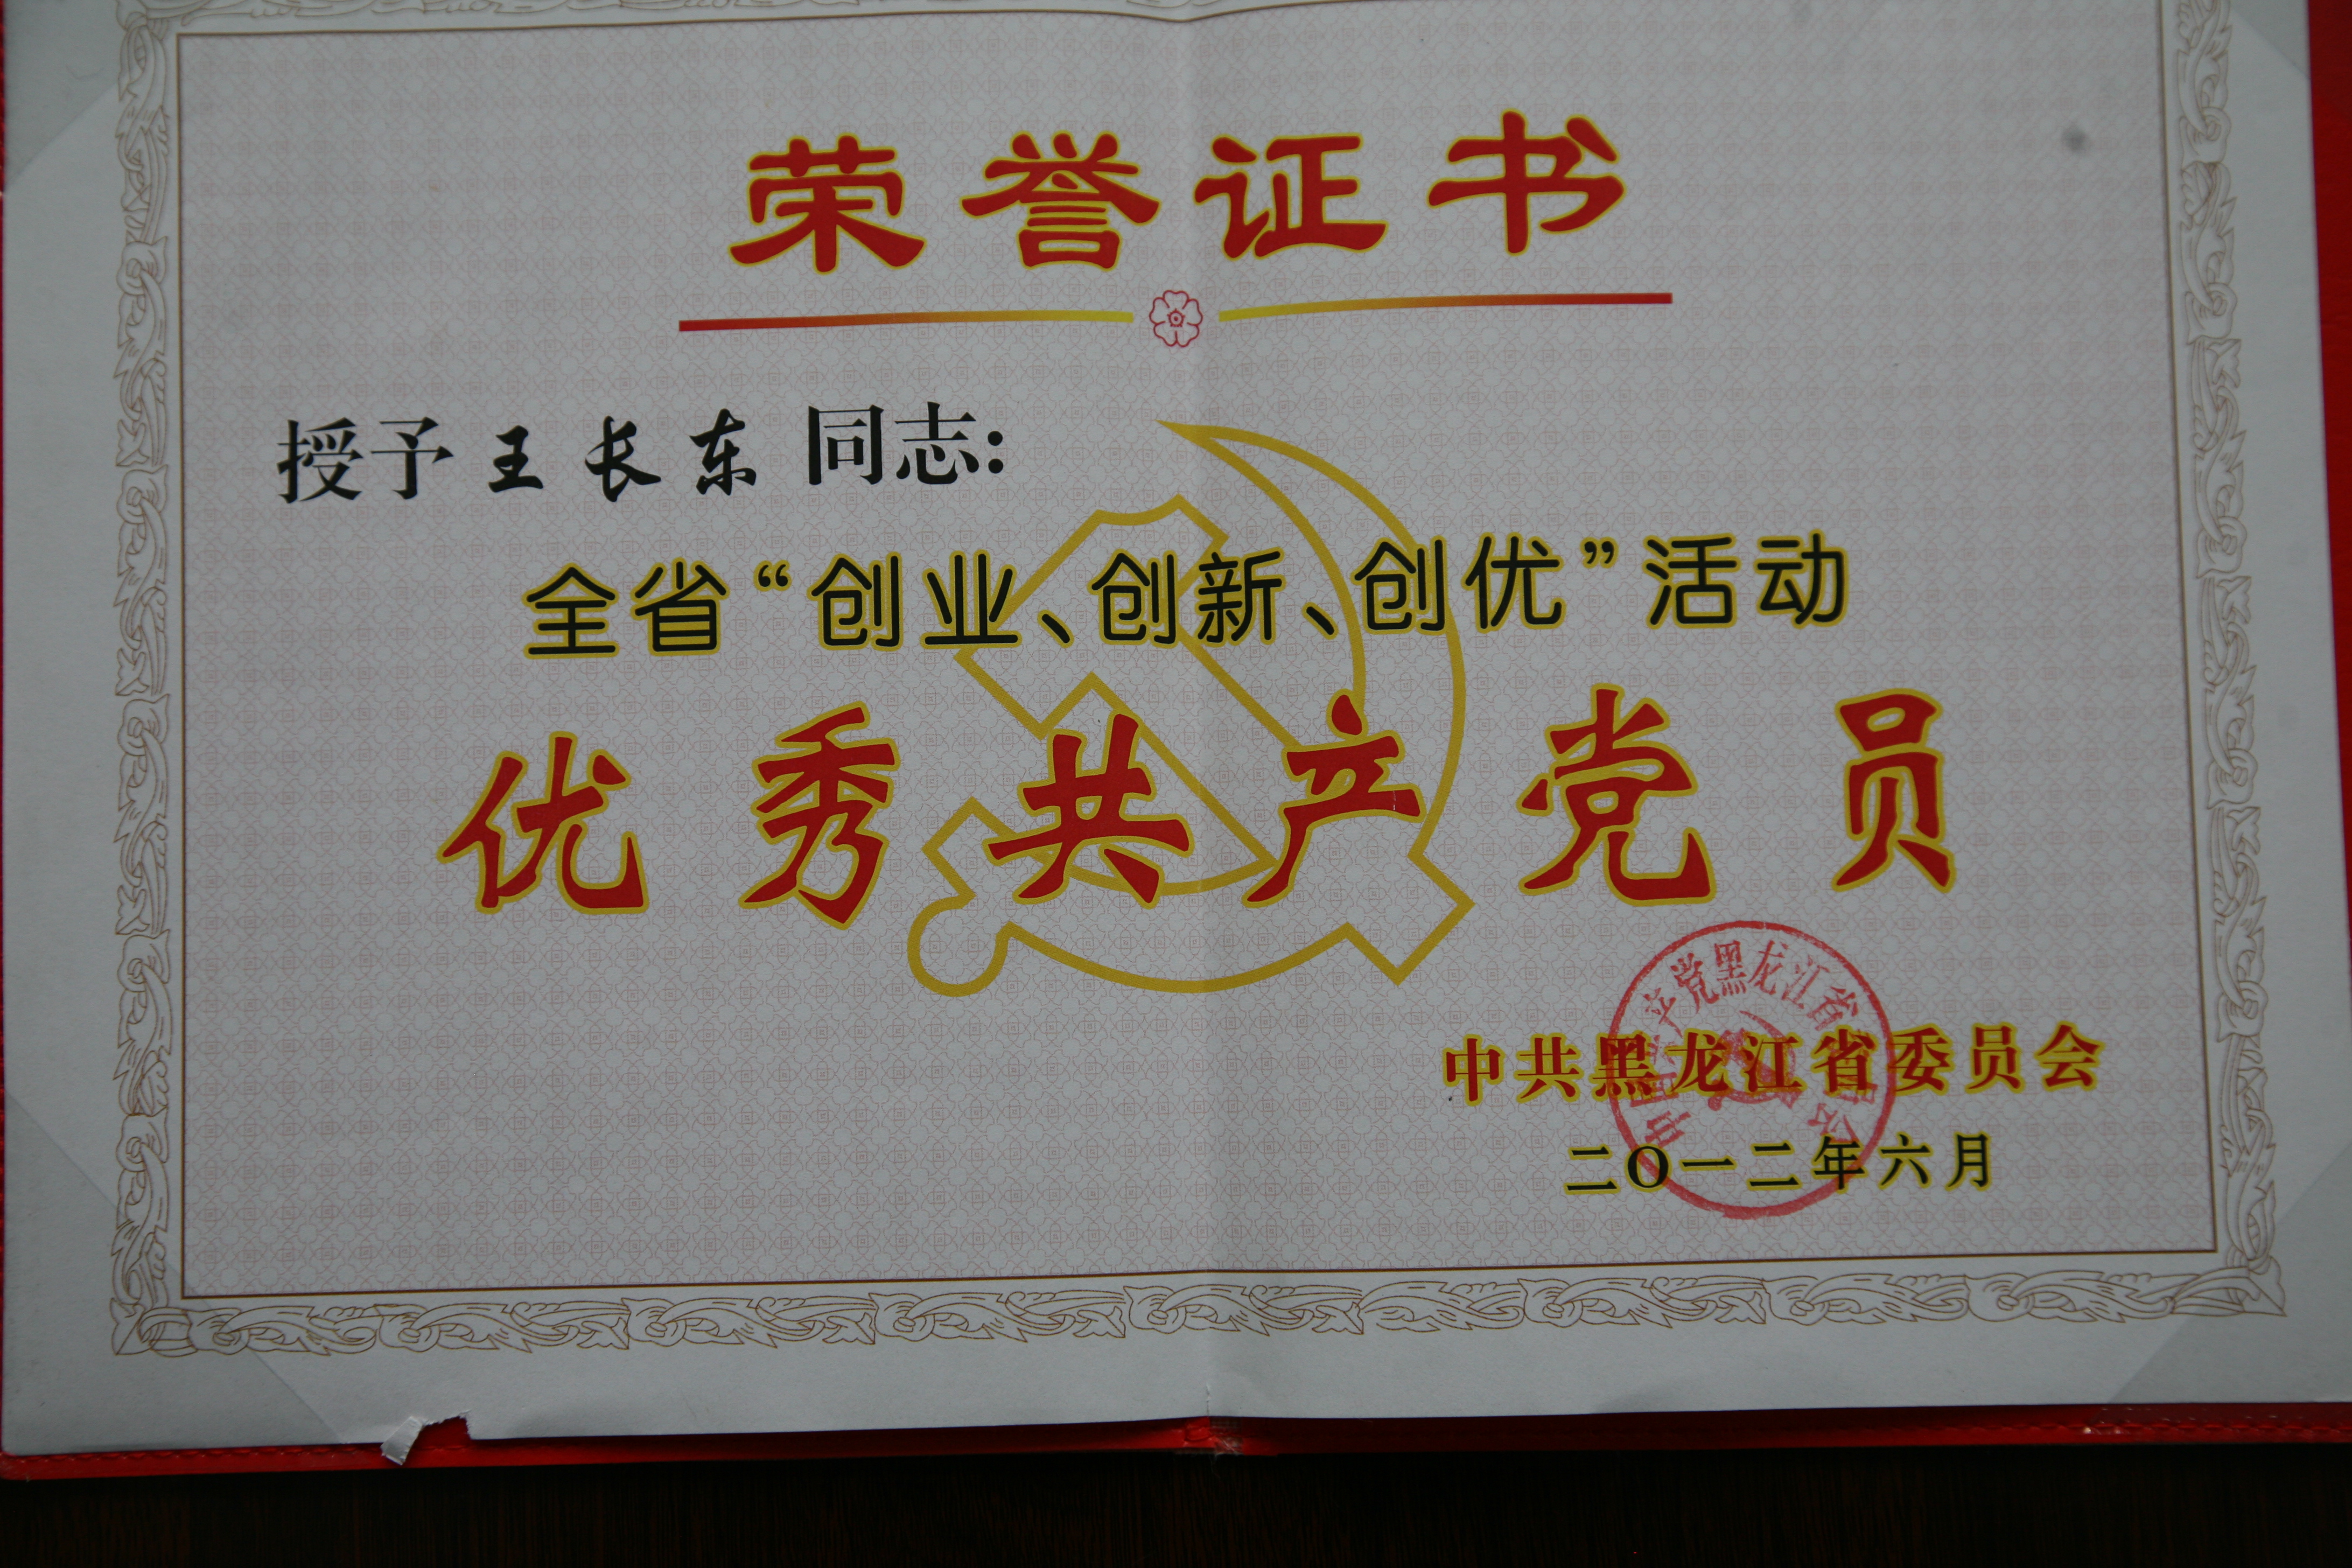 荣誉证书
授予王长东同志:
全省“创业、创新、创优”活动
优秀共产党员
中共黑龙江省委员会
二〇一二年六月